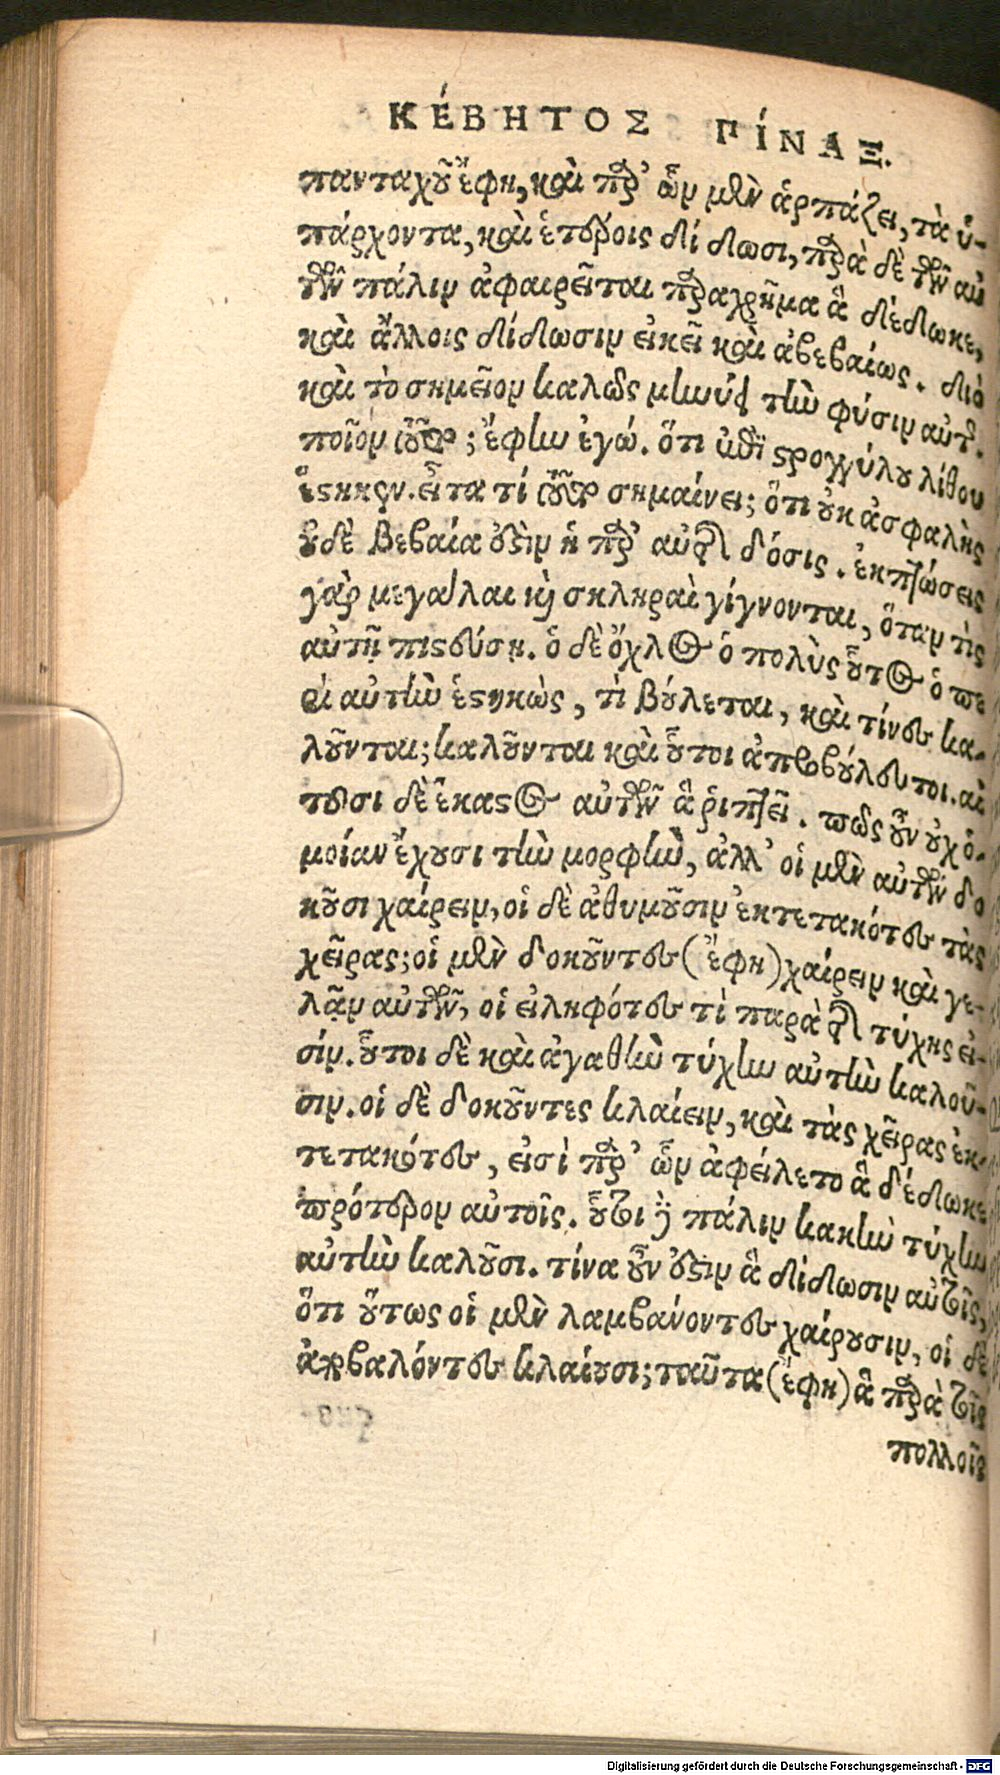 ΚΈΒΗΤΟΣ ΠΊΝΑΞ.
πανταχοῦ ἔφη, καὶ παρ' ὧν μὲν ἁρπάζει, τὰ ὑ-
πάρχοντα, καὶ ἑτέροις δίδωσι, παρὰ δὲ τῶν αὐ
τῶν πάλιν ἀφαιρεῖται παραχρῆμα ἃ δέδωκε,
καὶ ἄλλοις δίδωσιν εἰκεῖ καὶ ἀβεβαίως. διὸ
καὶ τὸ σημεῖον καλῶς μηνύει τὴν φύσιν αὐτῆς.
ποῖον τοῦτο; ἔφην ἐγώ. ὅτι ἐπὶ στρογγύλου λίθου
ἕστηκεν. εἶτα τί τοῦτο σημαίνει; ὅτι οὐκ ἀσφαλὴς
οὐδὲ βεβαία οὐδὲν ἡ παρ' αὐτῆς δόσις. ἐκπτώσεις
γὰρ μεγάλαι καὶ σκληραὶ γίγνονται, ὅταν τὶς
αὐτῇ πιστεύσῃ. ὁ δὲ ὄχλος ὁ πολὺς οὗτος ὁ πε
ρὶ αὐτὴν ἑστηκὼς, τὶ βούλεται, καὶ τίνες κα-
λοῦνται; καλοῦνται καὶ οὗτοι ἀπροβούλευτοι. αἰ
τοῦσι δὲ ἕκαστος αὐτῶν ἃ ῥιπτεῖ. πῶς οὖν οὐχ ὁ-
μοίαν ἔχουσι τὴν μορφὴν, ἀλλ' οἱ μὲν αὐτῶν δο
κοῦσι χαίρειν, οἱ δὲ ἀθυμοῦσιν ἐκτετακότες τὰς
χεῖρας; οἱ μὲν δοκοῦντες (ἔφη) χαίρειν καὶ γε-
λᾷν αὐτῶν, οἱ εἰληφότες τὶ παρὰ τῆς τύχης εἰ-
σίν. οὗτοι δὲ καὶ ἀγαθὴν τύχην αὐτὴν καλοῦ-
σιν. οἱ δὲ δοκοῦντες κλαίειν, καὶ τὰς χεῖρας ἐκ-
τετακότες, εἰσὶ παρ' ὧν ἀφείλετο ἃ δέδωκε
πρότερον αὐτοῖς. οὗτοι δὲ πάλιν κακὴν τύχην
αὐτὴν καλοῦσι. τίνα οὖν ἐστιν ἃ δίδωσιν αὐτοῖς,
ὅτι οὕτως οἱ μὲν λαμβάνοντες χαίρουσιν, οἱ δὲ
ἀποβαλόντες κλαίουσι; ταῦτα (ἔφη) ἃ παρὰ τοῖς
πολλοῖς
Digitalisierung gefördert durch die Deutsche Forschungsgemeinschaft - DFG